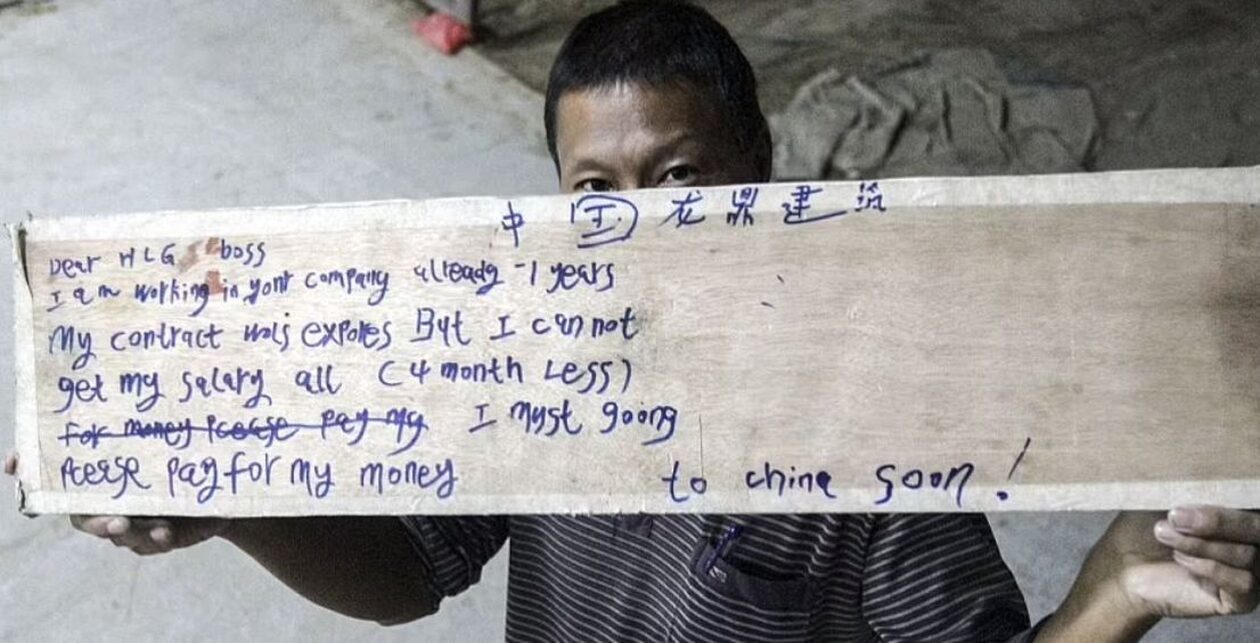 中国龙鼎建筑
Dear HLG boss
I am working in yont company already -1 years
My contract wals expores But I cannot
get my salary all (4 month Less)
for money Pcecse pay my I myst goong
Pcerse pay for my money to china soon!